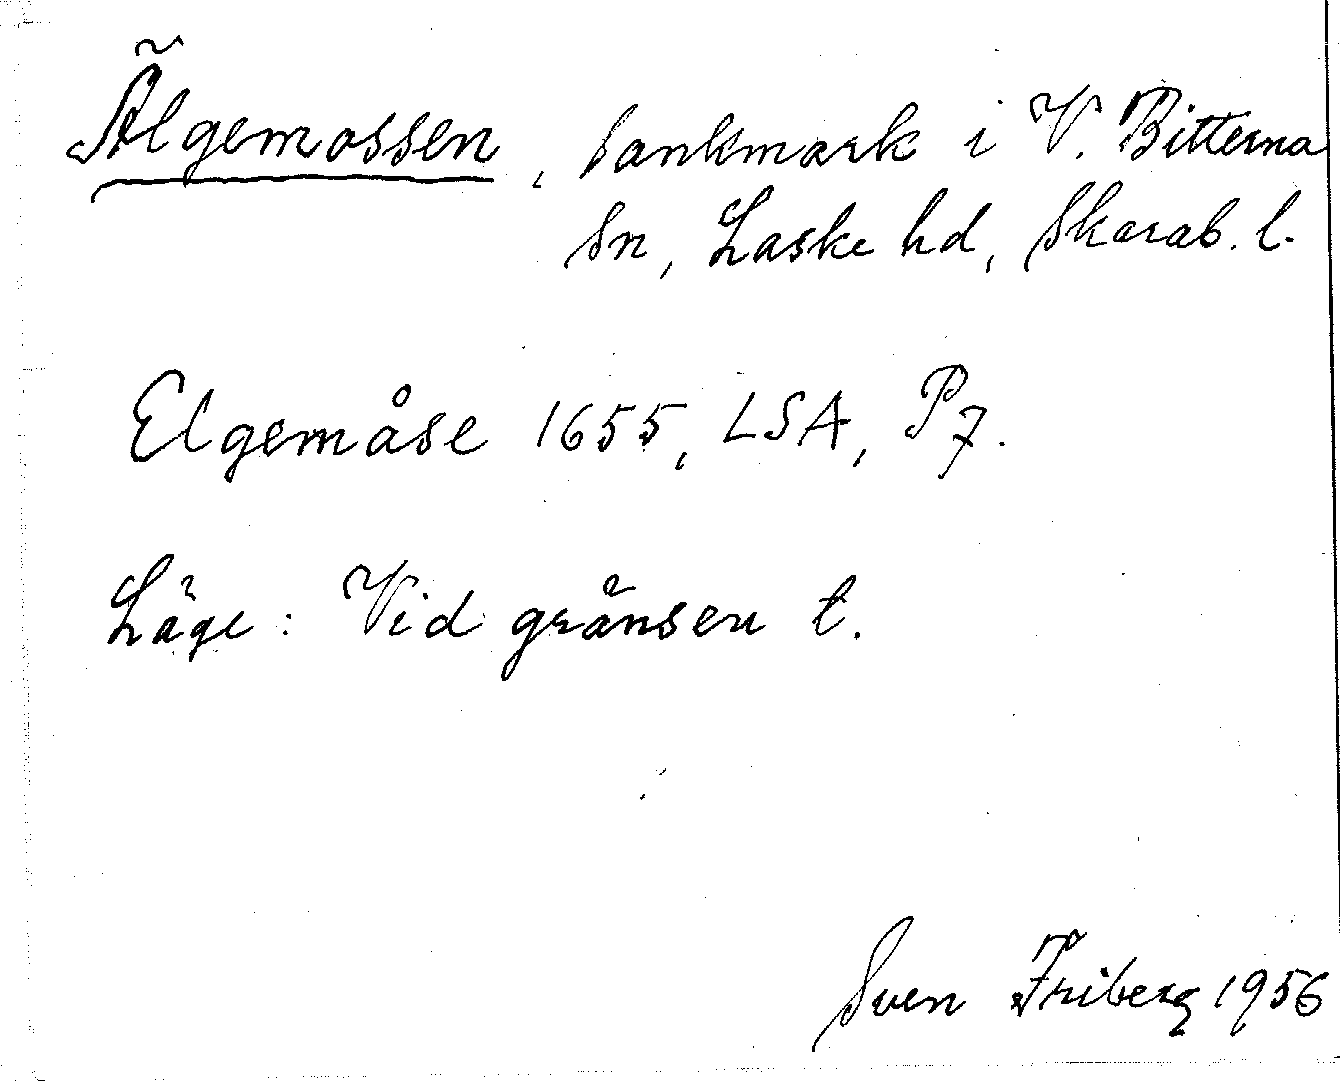 Älgemossen, Sankmark i V. Bitterna
Sn, Laske hd, Skarab. l.
Elgemåse 1655, LSA, P7.
Läge: Vid gränsen t.
Sven Friberg 1956